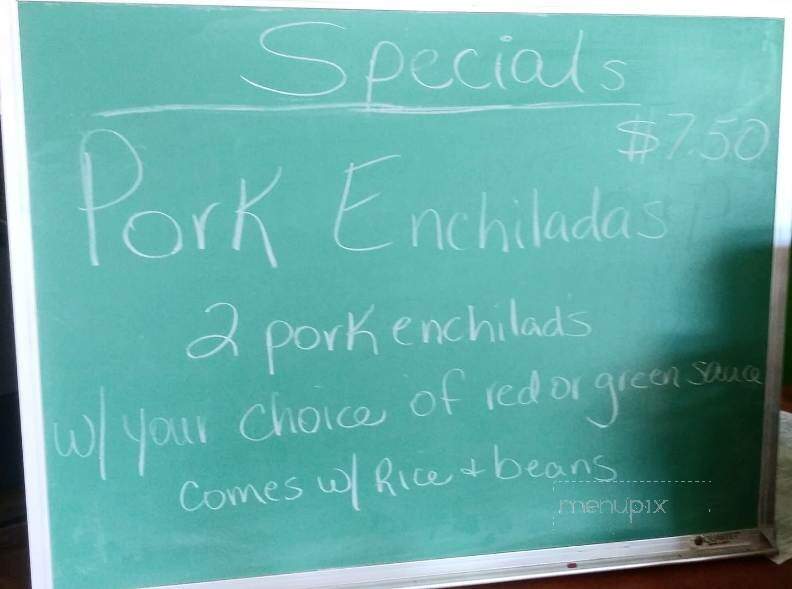 Specials
$7.50
Pork Enchiladas
2 pork enchilads
w/ your choice of red or green sauce
comes w/ Rice + beans
menupix